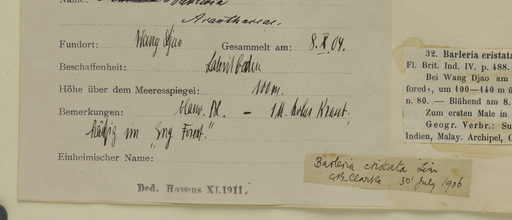 Name: Barleria
Acanthaceae.
Fundort: Wang Djao Gesammelt am: 8.X.04.
Beschaffenheit: Laterit Boden
Höhe über dem Meeresspiegel: 100m.
Bemerkungen: - 1 M. hohes Kraut,
häufig im „Eng Forest."
Einheimischer Name:
Ded. Hosseus XI.1911.
32. Barleria cristata
Fl. Brit. Ind. IV. p. 488.
Bei Wang Djao am
fored«, um 100—140 m ü
n. 80. — Blühend am 8.
Zum ersten Male in
Geogr. Verbr.: Su
Indien, Malay. Archipel, C
Barleria cristata Lin
CB. Clarke 30 July 1906